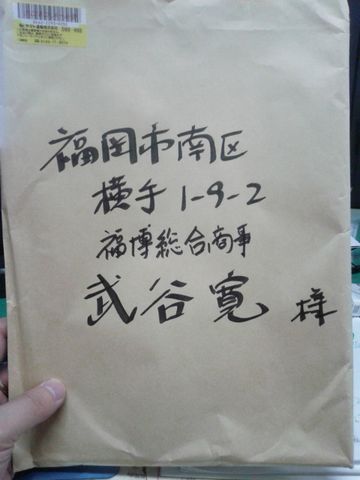 福岡市南区
横手1-9-2
福博総合商事
武谷寛 様